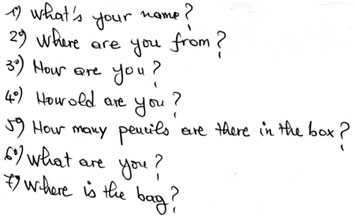 1°) What's your name?
2°) Where are you from?
3°) How are you?
4°) How old are you?
5°) How many pencils are there in the box?
6°) What are you?
7°) Where is the bag?